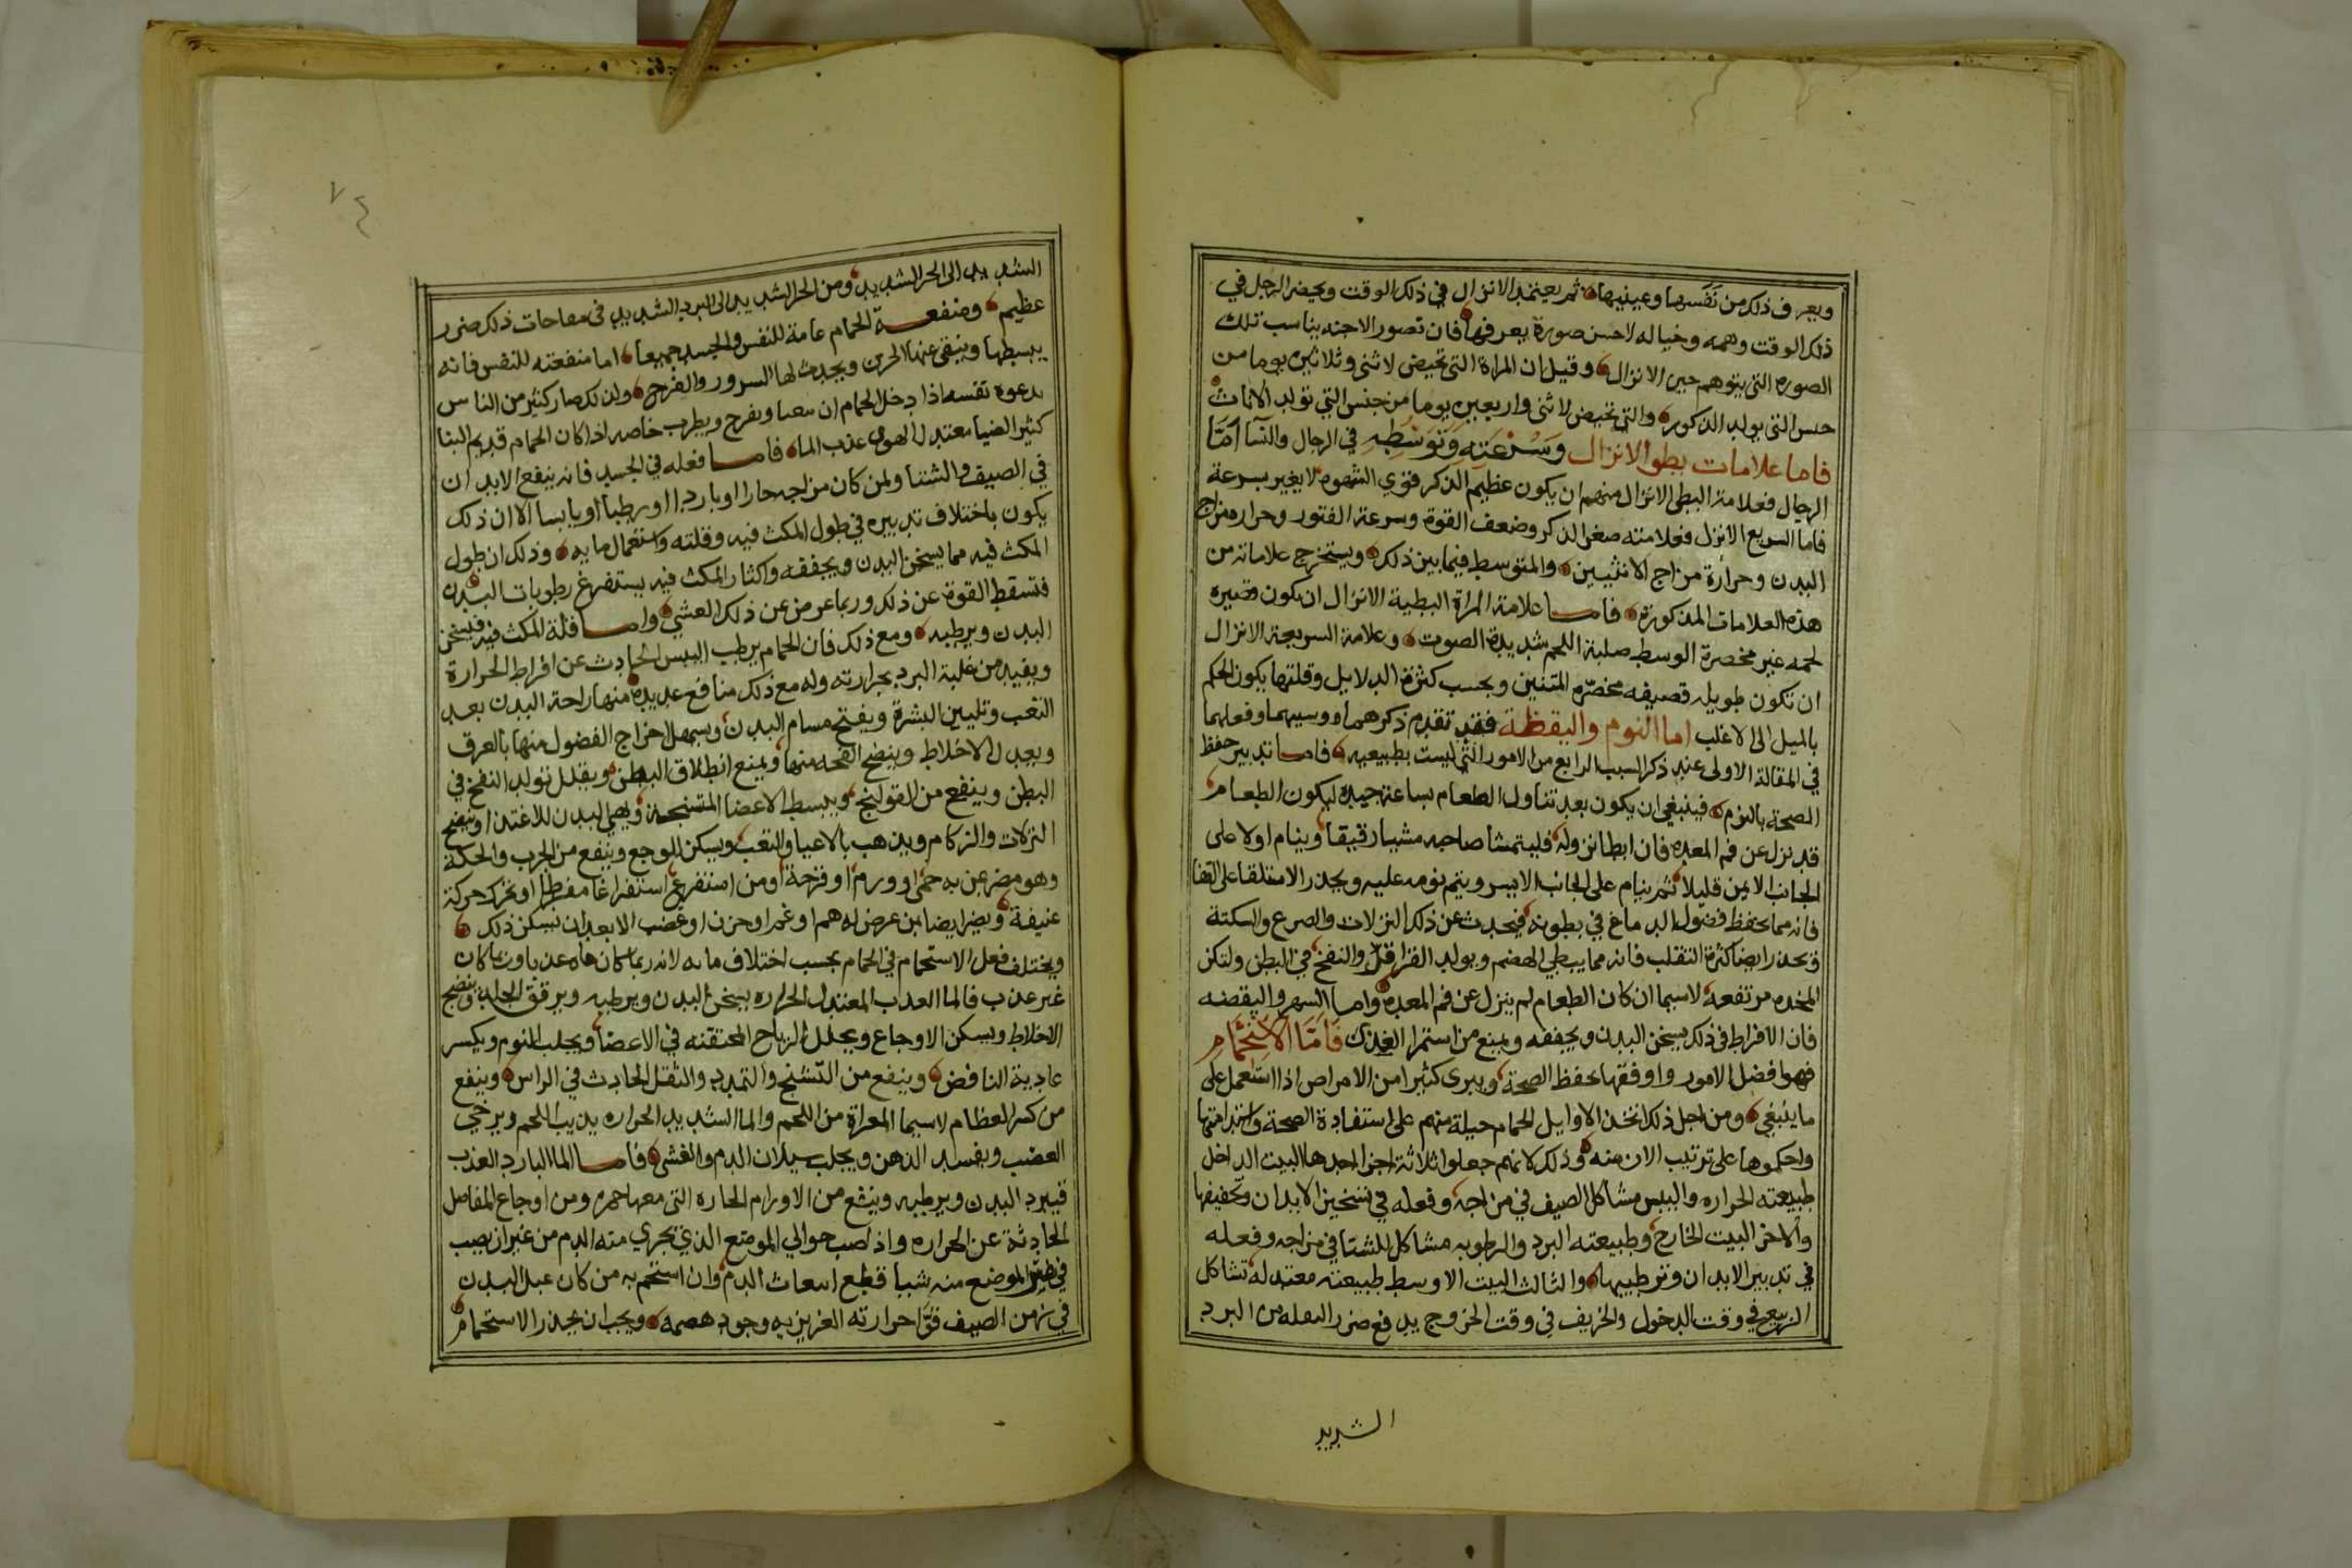 ويعرف ذلك من نفسها وعينيها ثم يعتمد الانزال في ذلك الوقت ويحضر الرجل في
ذلك الوقت وهمه وخياله لاحسن صورة يعرفها فان تصور الاجنه يناسب تلك
الصوره التي يتوهم حين الانزال وقيل ان المراة التي تحيض لاثنى وثلاثين يوما من
جنس التي يولد الذكور والتي تحيض لاثنى واربعين يوما من جنس التي تولد الاناث
فاما علامات بطو الانزال وسرعته وتوسطه في الرجال والنسآ امّا
الرجال فعلامة البطى الانزال منهم ان يكون عظيم الذكر قوي الشهوه لا يغير بسرعة
فاما السريع الانزل فعلامته صغر الذكر وضعف القوة وسرعة الفتور وحرار مزاج
البدن وحرارة مزاج الانثيين والمتوسط فيما بين ذلك ويستخرج علاماته من
هذه العلامات المذكورة فاما علامة المراة البطية الانزال ان يكون قصيره
لحمه غير مخصرة الوسط صلبة اللحم شديدة الصوت وعلامة السريعة الانزال
ان تكون طويله قصيفه مخصّره المتنين وبحسب كثرة الدلايل وقلتها يكون الحكم
بالميل الى الاغلب اما النوم واليقظة فقد تقدم ذكرهما ووسيهما وفعلهما
في المقالة الاولى عند ذكر السبب الرابع من الامور التي ليست بطبيعيه فاما تدبير حفظ
الصحة بالنوم فينبغي ان يكون بعد تناول الطعام بساعة جيده ليكون الطعام
قد نزل عن فم المعده فان ابطا نزوله فليتمشا صاحبه مشيا رقيقا وينام اولا على
الجانب الايمن قليلا ثم ينام على الجانب الايسر ويتم نومه عليه ويحذر الاستلقا على القفا
فانه مما يحفظ فضول الدماغ في بطونه فيحدث عن ذلك النزلات والصرع والسكتة
ويحذر ايضا كثرة التقلب فانه مما يبطي الهضم ويولد القراقر والنفخ في البطن ولتكن
المخده مرتفعه لاسيما ان كان الطعام لم ينزل عن فم المعده واما السهر واليقضه
فان الافراط في ذلك يسخن البدن ويجففه ويمنع من استمرا الغذا فَامَّا الاستحمام
فهو افضل الامور واوفقها بحفظ الصحة ويبرى كثيرا من الامراض اذا استعمل على
ما ينبغي ومن اجل ذلك اتخذ الاوايل الحمام حيلة منهم على استفادة الصحة واستدامتها
واحكموها على ترتيب الان منه وذلك لانهم جعلوا ثلاثة اجزا احدها البيت الداخل
طبيعته الحراره واليبس مشاكل الصيف في مزاجه وفعله في تسخين الابدان وتخفيفها
والاخر البيت الخارج وطبيعته البرد والرطوبه مشاكل للشتا في مزاجه وفعله
في تدبير الابدان وترطيبها والثالث البيت الاوسط طبيعته معتدله تشاكل
الربيع في وقت الدخول والخريف في وقت الخروج يدفع ضرر النقله من البرد
الشديد
٧٤
الشديد الى الحر الشديد ومن الحر الشديد الى البرد الشديد في مفاجات ذلك ضرر
عظيم ومنفعة الحمام عامة للنفس والجسد جميعا اما منفعته للنفس فانه
يبسطها وينقي عنها الحزن ويحدث لها السرور والفرح ولذلك صار كثير من الناس
يدعوه نفسه اذا دخل الحمام ان يغنا ويفرح ويطرب خاصه اذا كان الحمام قديم البنا
كثير الضيا معتدل الهوى عذب الما فاما فعله في الجسد فانه ينفع الابدان
في الصيف والشتا ولمن كان مزاجه حارا او باردا او رطبا او يابسا الا ان ذلك
يكون باختلاف تدبيره في طول المكث فيه وقلته واستعمال مايه وذلك ان طول
المكث فيه مما يسخن البدن ويجففه واكثار المكث فيه يستفرغ رطوبات البدن
فتسقط القوة عن ذلك وربما عرض عن ذلك الغشي واما قلة المكث فيه فيسخن
البدن ويرطبه ومع ذلك فان الحمام يرطب اليبس الحادث عن افراط الحرارة
ويفيد من غلبة البرد بحرارته وله مع ذلك منافع عديده منها راحة البدن بعد
التعب وتليين البشرة ويفتح مسام البدن ويسهل اخراج الفضول منها بالعرق
ويعدل الاخلاط وينضج الفجه منها ويمنع انطلاق البطن ويقلل تولد النفخ في
البطن وينفع من القولنج ويبسط الاعضا المتشنجة ويهي البدن للاغتذا وينضج
النزلات والزكام ويذهب بالاعيا والتعب ويسكن الوجع وينفع من الجرب والحكة
وهو مضر بمن به حمى او ورم او قرحة او من استفرغ استفراغا مفرطا او تحرك حركة
عنيفة ويضر ايضا بمن عرض له هم او غم او حزن او غضب الا بعد ان يسكن ذلك
ويختلف فعل الاستحمام في الحمام بحسب اختلاف مايه لانه ربما كان ماه عذبا وربما كان
غير عذب فالما العذب المعتدل الحراره يسخن البدن ويرطبه ويرقق الجلد وينضج
الاخلاط ويسكن الاوجاع ويحلل الرياح المحتقنه في الاعضا ويجلب النوم ويكسر
عادية النافض وينفع من التشنج والتمدد والثقل الحادث في الراس وينفع
من كسر العظام لاسيما المعراة من اللحم والما الشديد الحراره يذيب اللحم ويرخي
العصب ويفسد الذهن ويجلب سيلان الدم والغشي فاما الما البارد العذب
فيبرد البدن ويرطبه وينفع من الاورام الحاره التي معها حمره ومن اوجاع المفاصل
الحادثة عن الحراره واذا صب حوالي الموضع الذي تجري منه الدم من غير ان يصب
في الموضع منه شيا قطع انبعاث الدم وان استحم به من كان عبل البدن
في زمن الصيف قوّا حرارته الغريزيه وجود هضمه ويجب ان يحذر الاستحمام